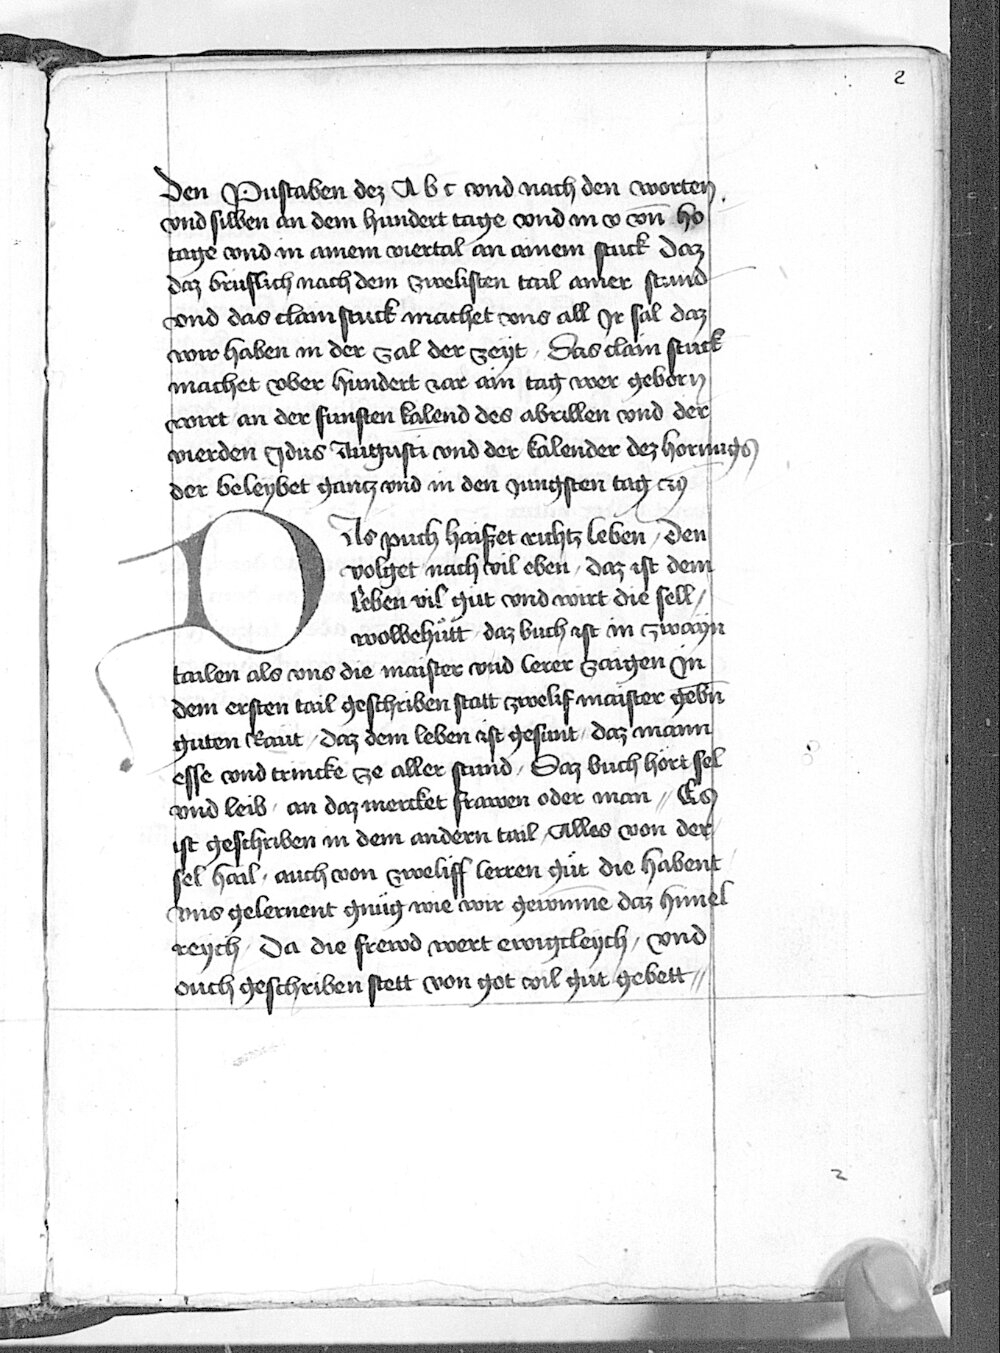 2
den Pustaben dez A b c vnd nach den worten
vnd silben an dem hundert tage vnd in v von ho
tage vnd in ainem viertal an ainem stuck Daz
daz bruflich nach dem zwelisten tail ainer stund
vnd das clain stuck machet vns all Ir sal daz
wir haben in der zal der zeyt / Das clain stuck
machet vber hundert iar ain tag wer geborn
wirt an der funften kalend des abrillen vnd der
vierden Idus Augusti vnd der kalender dez hornugs
der beleybet gantz vnd in den iungsten tag
Das puch haisset richtz leben / Den
volget nach vil eben / daz ist dem
leben vil gut vnd wirt die sell /
wolbehütt daz buch ist in zwayn
tailen als vns die maister vnd lerer zaigen In
dem ersten tail geschriben statt zwelif maister gebn
guten Raut / daz dem leben ist gesunt / daz mann
esse vnd trincke ze aller stund / Daz buch hört sel
vnd leib / an daz mercket frawen oder man // Es
ist geschriben in dem andern tail / Alles von der
sel hail / auch von zweliff lerren güt die habent
vns gelernent gnüg wie wir gewinne daz himel
reych / Da die frewd wert ewigcleych / vnd
ouch geschriben stett von got vil gut gebett //
2